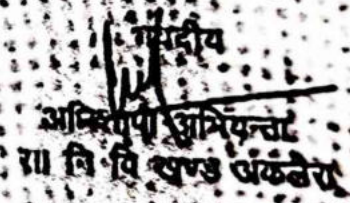 भवदीय
अधिशाषी अभियन्ता
सा नि वि खण्ड अकलेरा